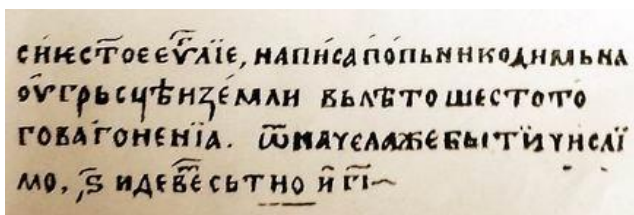 сиѥст҃оеев҃лїе, написапопьникодимьна
оѵгрьсцѣиꙁемли вьлѣто шестото
говагоненїа. ѿначелажебытїичислї
мо, ҂ѕ҃ идеве҃сьтно и г҃і~